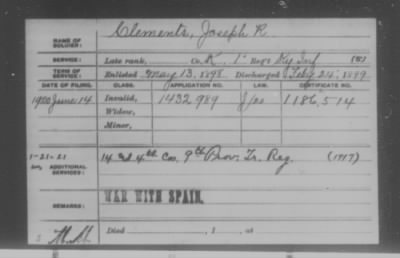 NAME OF SOLDIER: Clements, Joseph R.
SERVICE: Late rank, Co. K, 1" Reg't Ky Inf
TERM OF SERVICE: Enlisted May 13, 1898. Discharged Feby 24", 1899
DATE OF FILING. CLASS. APPLICATION NO. LAW. CERTIFICATE NO.
1900 June 14 Invalid, 1432 989 1186,514
Widow,
Minor,
1-21-21
ADDITIONAL SERVICES: 4th Co. 9th Prov. Tr. Reg. (1917)
WAR WITH SPAIN.
REMARKS:
Died , 1 , at